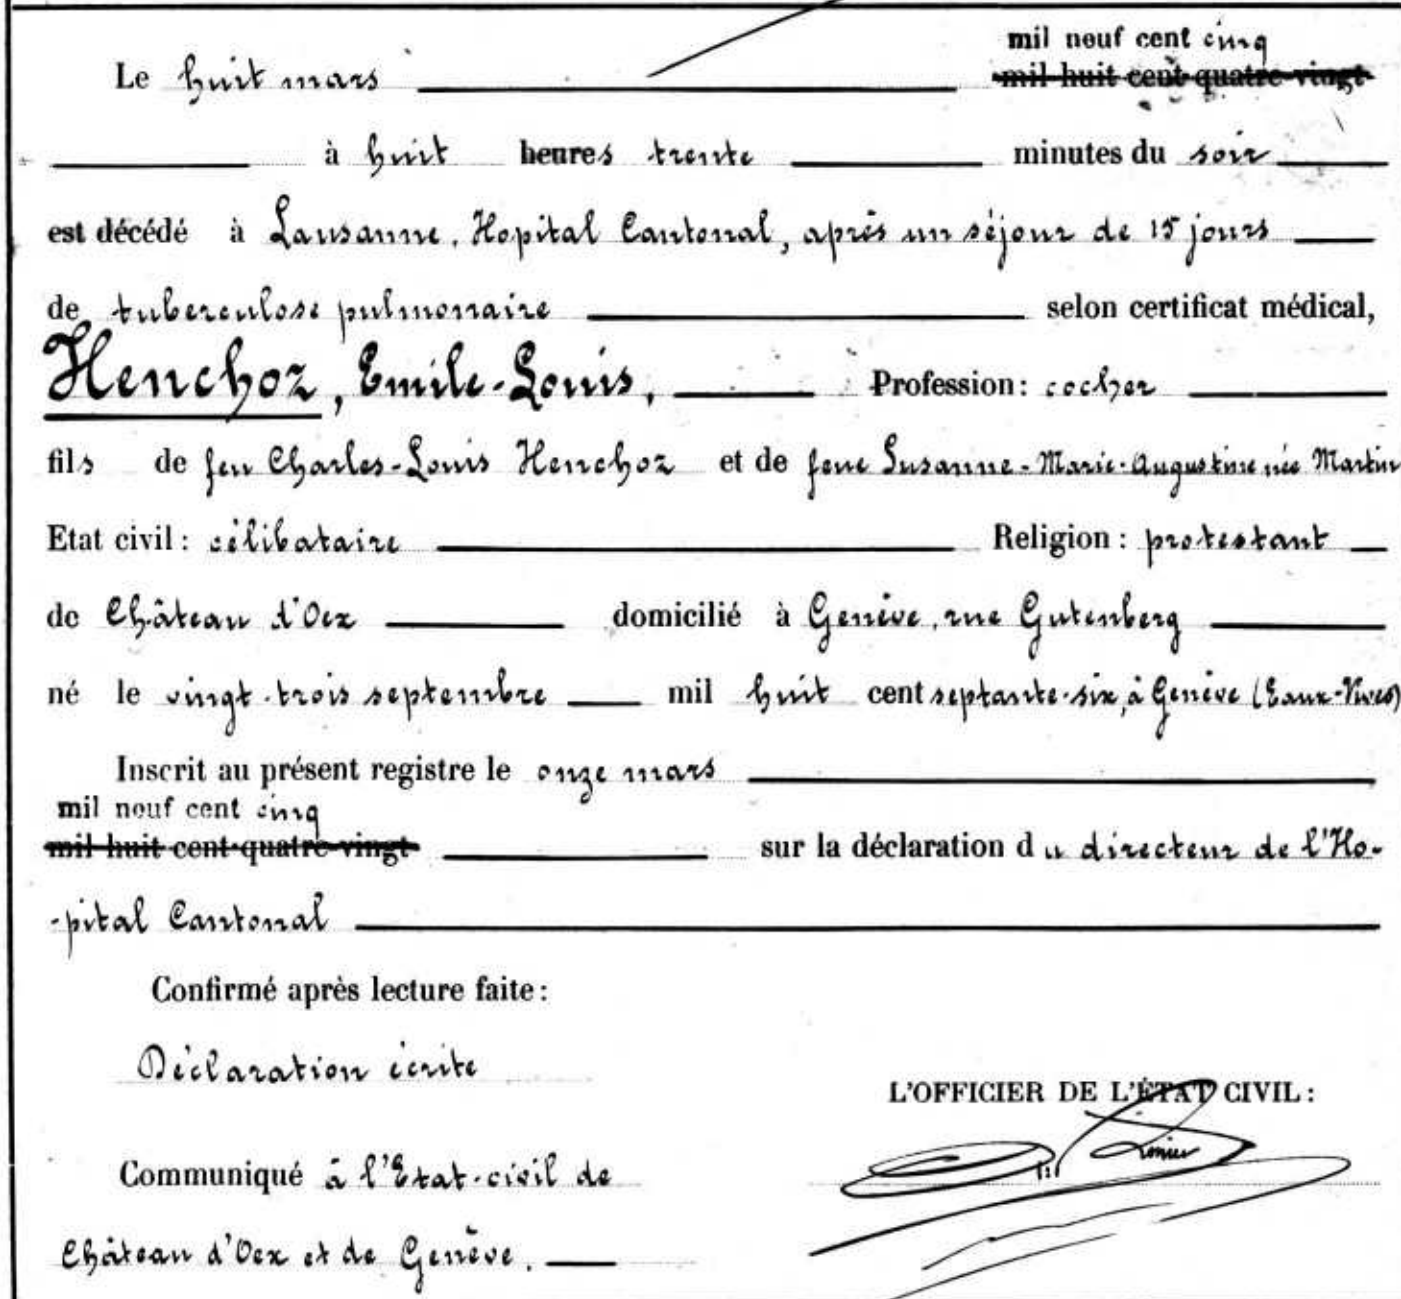 mil neuf cent cinq
Le huit mars mil huit cent quatre-vingt
à huit heures trente minutes du soir
est décédé à Lausanne, Hopital Cantonal, après un séjour de 15 jours
de tuberculose pulmonaire selon certificat médical,
Henchoz, Emile-Louis, Profession: cocher
fils de feu Charles-Louis Henchoz et de feue Susanne-Marie-Augustine née Martin
Etat civil: célibataire Religion: protestant
de Château d'Oex domicilié à Genève, rue Gutenberg
né le vingt-trois septembre mil huit cent septante-six, à Genève (Eaux-Vives)
Inscrit au présent registre le onze mars
mil neuf cent cinq
mil huit cent quatre-vingt sur la déclaration du directeur de l'Ho-
-pital Cantonal
Confirmé après lecture faite:
Déclaration écrite
L'OFFICIER DE L'ÉTAT CIVIL:
Communiqué à l'Etat-civil de
Château d'Oex et de Genève.